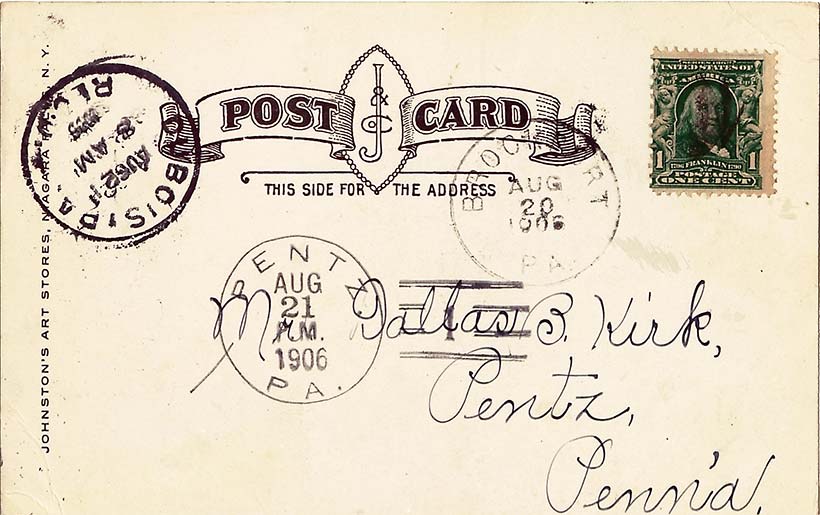 JOHNSTON'S ART STORES, NIAGARA FALLS, N. Y.
POST CARD
J & Co
THIS SIDE FOR THE ADDRESS
DUBOIS, PA.
AUG 21
8 AM
BROCKPORT
AUG
20
1906
PA.
UNITED STATES OF
AMERICA
1 FRANKLIN 1
POSTAGE
ONE CENT
PENTZ
AUG
21
P.M.
1906
PA.
1
Mr. Dallas B. Kirk,
Pentz,
Penn'a,